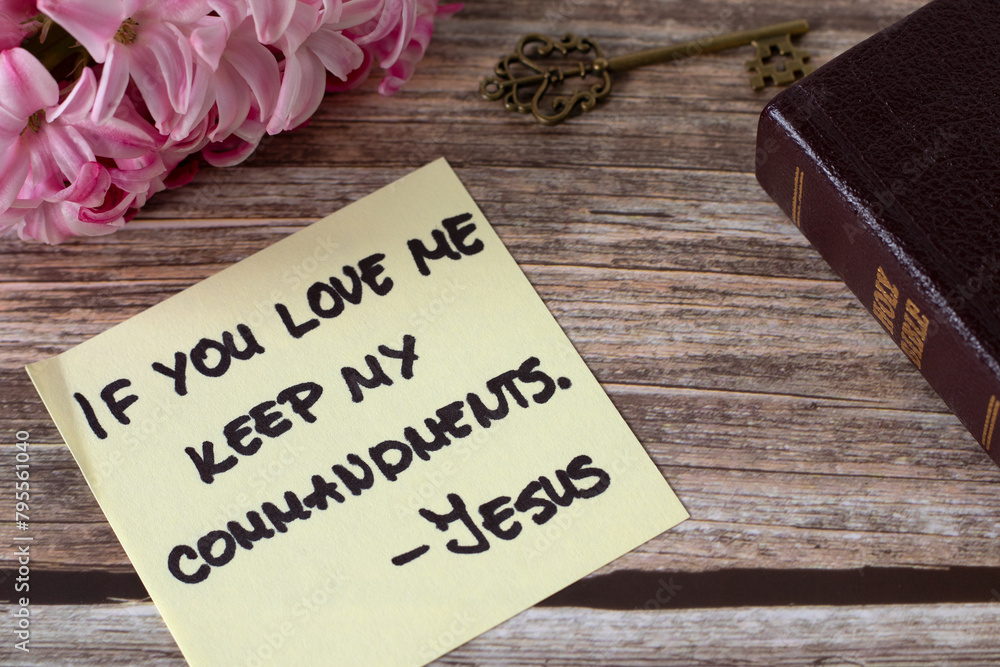 IF YOU LOVE ME
KEEP MY
COMMANDMENTS.
- JESUS
HOLY
BIBLE
Adobe Stock | #795561040